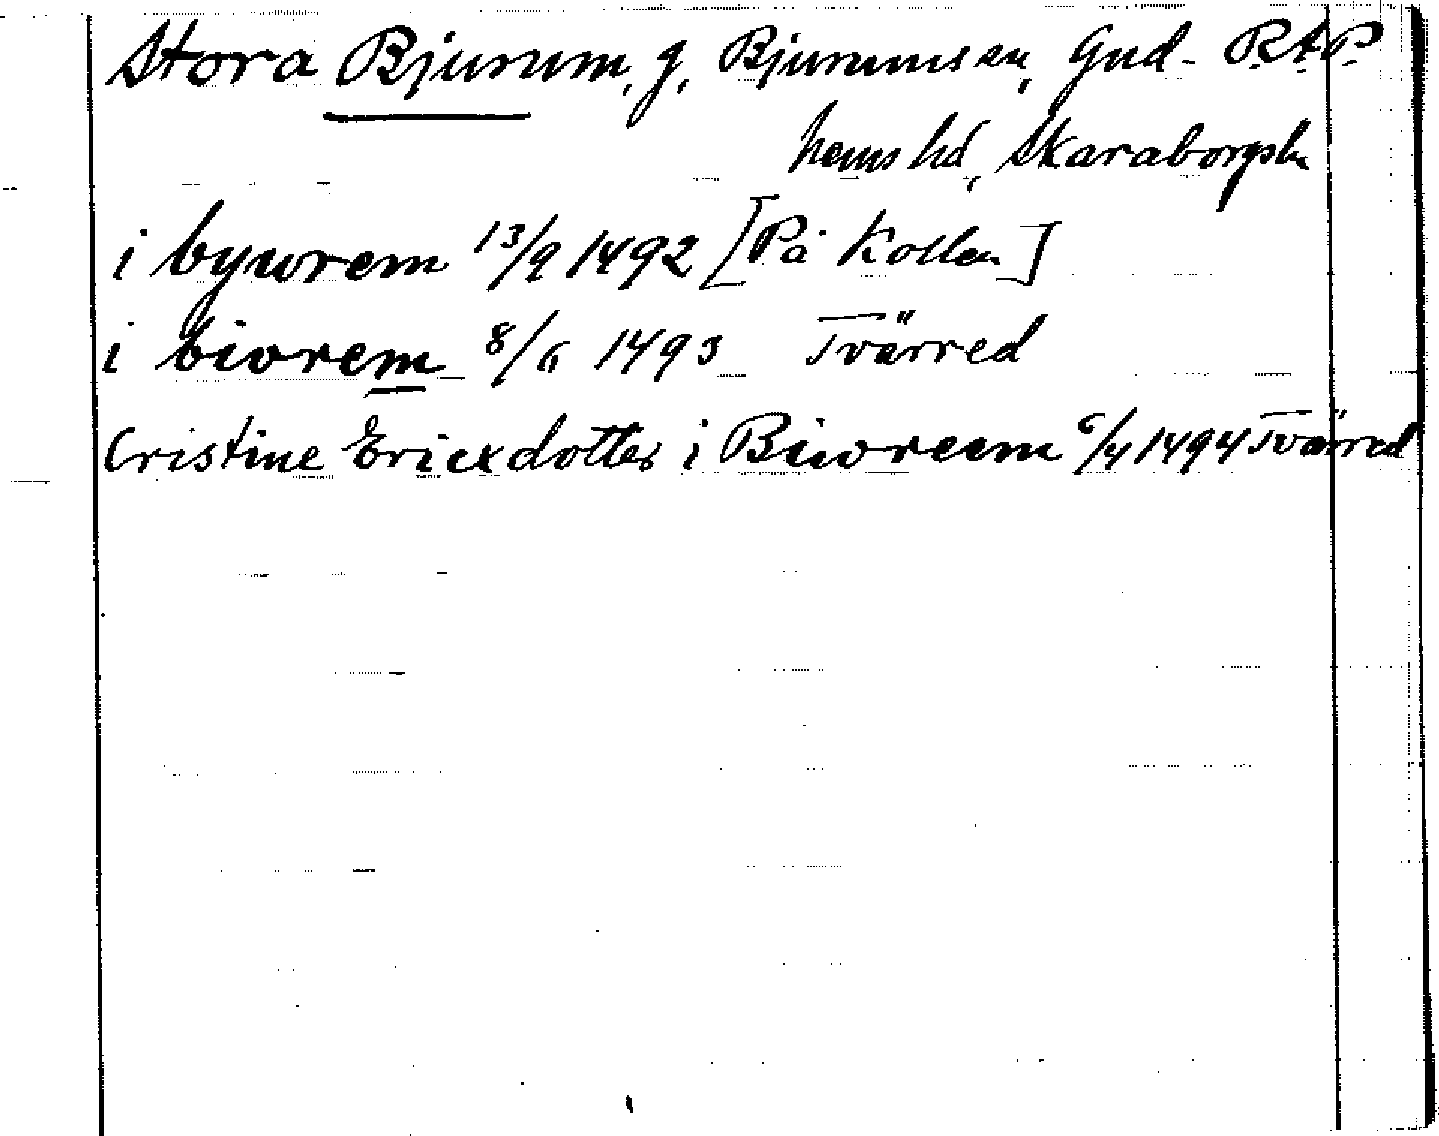 Stora Bjurum, g, Bjurums sn, Gud- R.A.P.
hems hd, Skaraborgs ln
i byworem 13/9 1492 [På Kollen]
i biorem 8/6 1493 Tvärred
Cristine Ericxdotter i Biworeem 6/4 1494 Tvärred